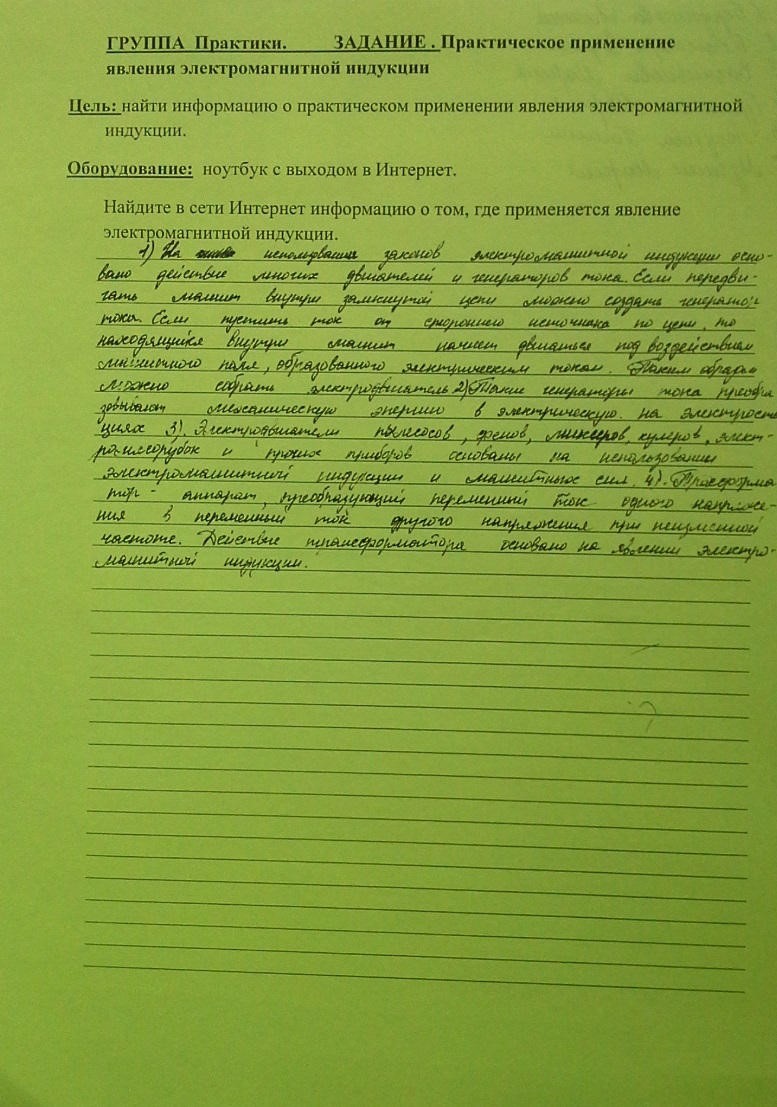 ГРУППА Практики. ЗАДАНИЕ . Практическое применение
явления электромагнитной индукции
Цель: найти информацию о практическом применении явления электромагнитной
индукции.
Оборудование: ноутбук с выходом в Интернет.
Найдите в сети Интернет информацию о том, где применяется явление
электромагнитной индукции.
1) На использовании законов электромагнитной индукции осно-
вано действие многих двигателей и генераторов тока. Если передви-
гать магнит внутри замкнутой цепи можно создать генератор
тока. Если пустить ток от стороннего источника по цепи, то
находящийся внутри магнит начнет двигаться под воздействием
магнитного поля, образованного электрическим током. Таким образом
можно собрать электродвигатель 2) Такие генераторы тока преобра
зовывают механическую энергию в электрическую на электрост
циях 3). Электродвигатели пылесосов, фенов, миксеров, кулеров, элект-
ромясорубок и прочих приборов основаны на использовании
электромагнитной индукции и магнитных сил. 4). Трансформа
тор - аппарат, преобразующий переменный ток одного напряже-
ния в переменный ток другого напряжения при неизменной
частоте. Действие трансформатора основано на явлении электро-
магнитной индукции.